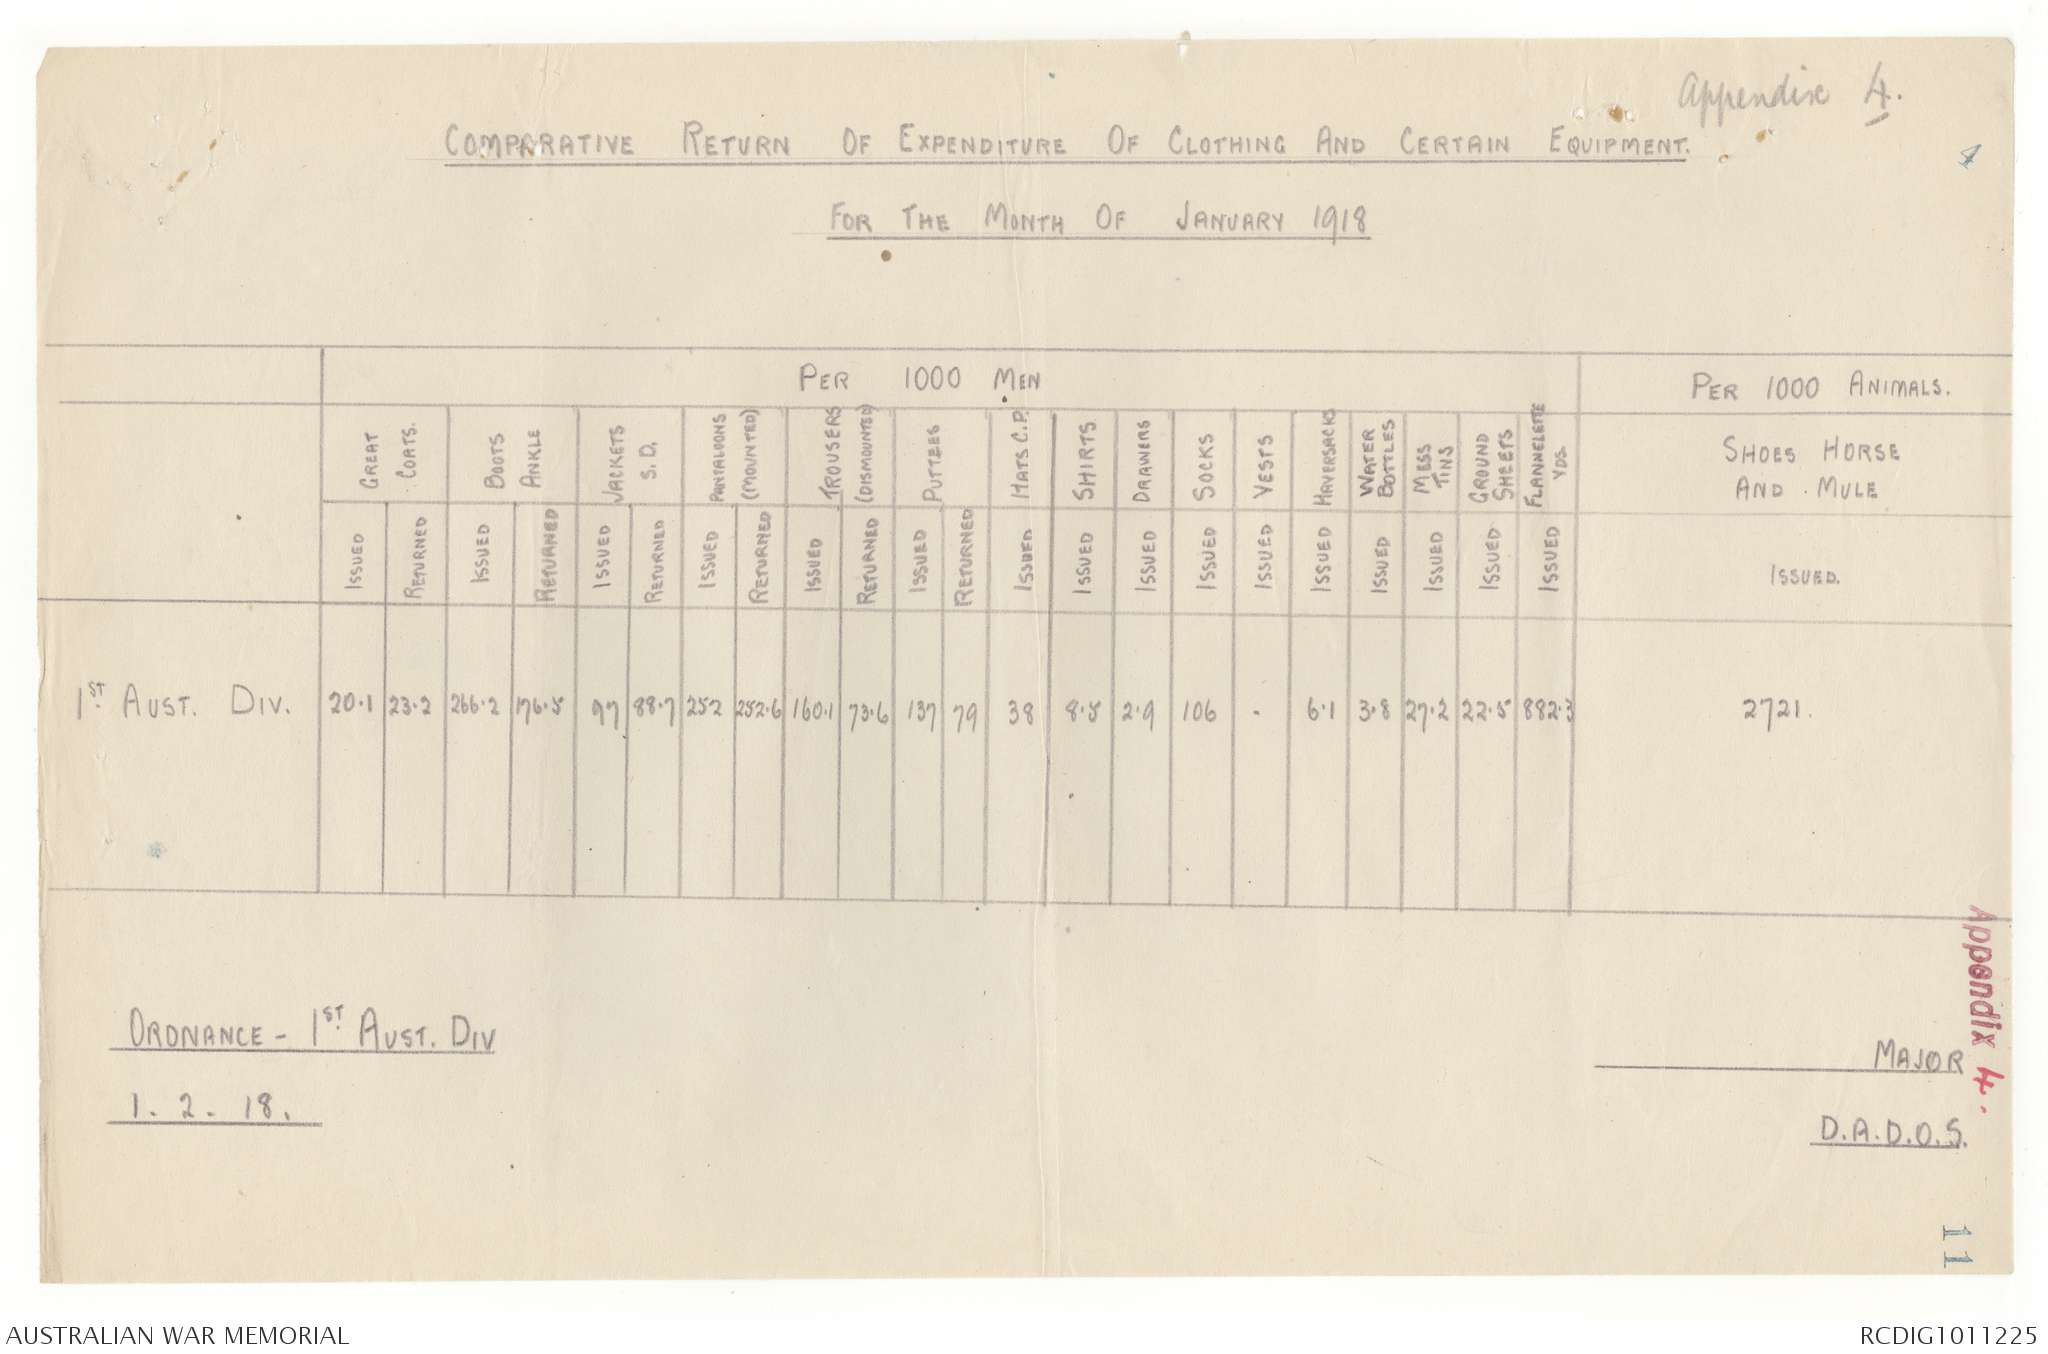 Appendix 4.
4
COMPARATIVE RETURN OF EXPENDITURE OF CLOTHING AND CERTAIN EQUIPMENT.
FOR THE MONTH OF JANUARY 1918
PER 1000 MEN
PER 1000 ANIMALS.
GREAT COATS.
BOOTS ANKLE
JACKETS S.D.
PANTALOONS (MOUNTED)
TROUSERS (DISMOUNTED)
PUTTEES
HATS C.P.
SHIRTS
DRAWERS
SOCKS
VESTS
HAVERSACKS
WATER BOTTLES
MESS TINS
GROUND SHEETS
FLANNELETTE YDS.
SHOES HORSE
AND MULE
ISSUED RETURNED ISSUED RETURNED ISSUED RETURNED ISSUED RETURNED ISSUED RETURNED ISSUED RETURNED ISSUED ISSUED ISSUED ISSUED ISSUED ISSUED ISSUED ISSUED ISSUED ISSUED ISSUED.
1ST AUST. DIV. 20.1 23.2 266.2 176.5 97 88.7 252 252.6 160.1 73.6 137 79 38 8.5 2.9 106 - 6.1 3.8 27.2 22.5 882.3 2721.
Appendix 4.
ORDNANCE - 1ST AUST. DIV
MAJOR
1. 2. 18.
D.A.D.O.S.
11
AUSTRALIAN WAR MEMORIAL
RCDIG1011225